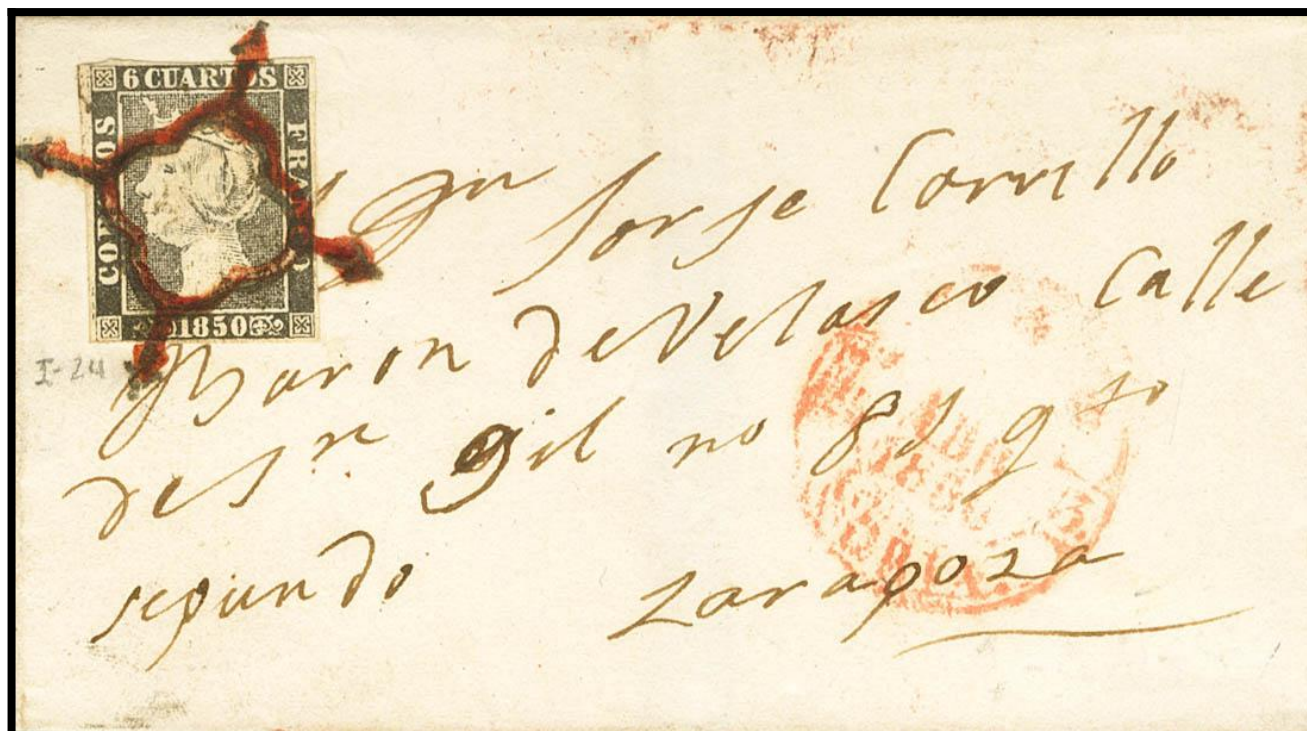 6 CUARTOS
CORREOS
FRANCO
1850
I-24
Dn Jorje Corrillo
Baron de Velasco Calle
de Sn gil no 8 qto
segundo Zaragoza